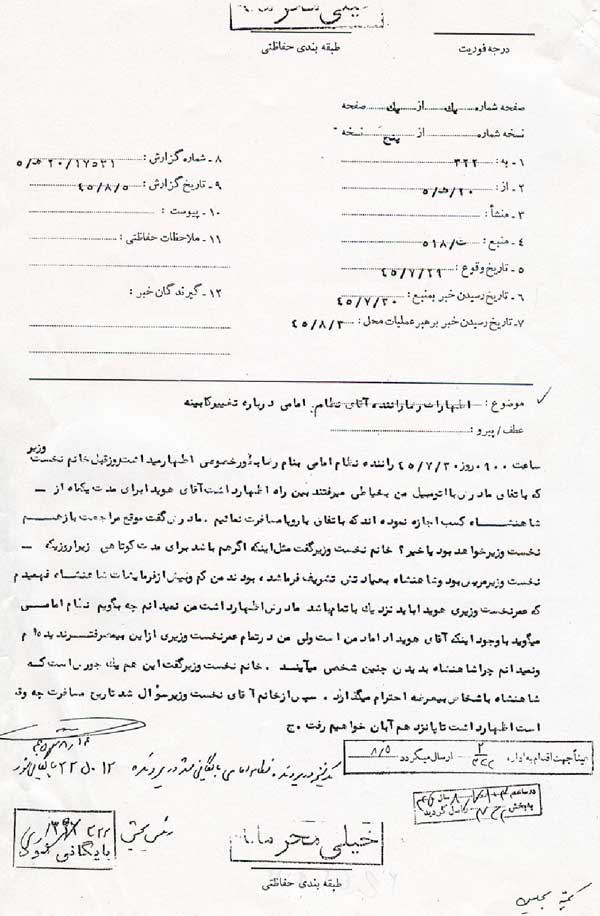 خیلی محرمانه
طبقه بندی حفاظتی
درجه فوریت
صفحه شماره یک از یک صفحه
نسخه شماره از پنج نسخه
۱ـ به : ۳۲۲
۲ـ از : ۲۰/ه‍/۵
۳ـ منشأ :
۴ـ منبع : ت/۵۱۸
۵ـ تاریخ وقوع : ۴۵/۷/۲۹
۶ـ تاریخ رسیدن خبر بمنبع : ۴۵/۷/۳۰
۷ـ تاریخ رسیدن خبر برهبر عملیات محل : ۴۵/۸/۳
۸ـ شماره گزارش : ۲۰/۱۷۵۳۱ ه‍/۵
۹ـ تاریخ گزارش : ۴۵/۸/۵
۱۰ـ پیوست :
۱۱ـ ملاحظات حفاظتی :
۱۲ـ گیرندگان خبر :
موضوع : اظهارات رضا راننده آقای نظام امامی درباره تغییر کابینه
عطف / پیرو :
ساعت ۰۹۰۰ روز ۴۵/۷/۳۰ راننده نظام امامی بنام رضا بطور خصوصی اظهار میداشت روز قبل خانم نخست وزیر
که باتفاق مادرش با اتومبیل من بخیاطی میرفتند بین راه اظهار داشت آقای هویدا برای مدت یکماه از ـ
شاهنشاه کسب اجازه نموده اند که باتفاق باروپا مسافرت نمائیم . مادرش گفت موقع مراجعت باز هم
نخست وزیر خواهد بود یا خیر ؟ خانم نخست وزیر گفت مثل اینکه اگر هم باشد برای مدت کوتاهی زیرا روزیکه ـ
نخست وزیر مریض بود و شاهنشاه بعیادتش تشریف فرما شده بودند من کم و بیش از فرمایشات شاهنشاه فهمیدم
که عمر نخست وزیری هویدا باید نزدیک باتمام باشد مادرش اظهار داشت من نمیدانم چه بگویم نظام امامی
میگوید با وجود اینکه آقای هویدا داماد من است ولی من در تمام عمر نخست وزیری از این بیعرضه تر ندیده ام
و نمیدانم چرا شاهنشاه بدیدن چنین شخصی میآیند . خانم نخست وزیر گفت این هم یک جورش است که
شاهنشاه باشخاص بیعرضه احترام میگذارند . سپس از خانم آقای نخست وزیر سؤال شد تاریخ مسافرت چه وقت
است اظهار داشت تا پانزدهم آبان خواهیم رفت . ج
عیناً جهت اقدام به اداره ۲/۳۲۲ ارسال میگردد ۸/۵
بایگانی شود
خیلی محرمانه
طبقه بندی حفاظتی